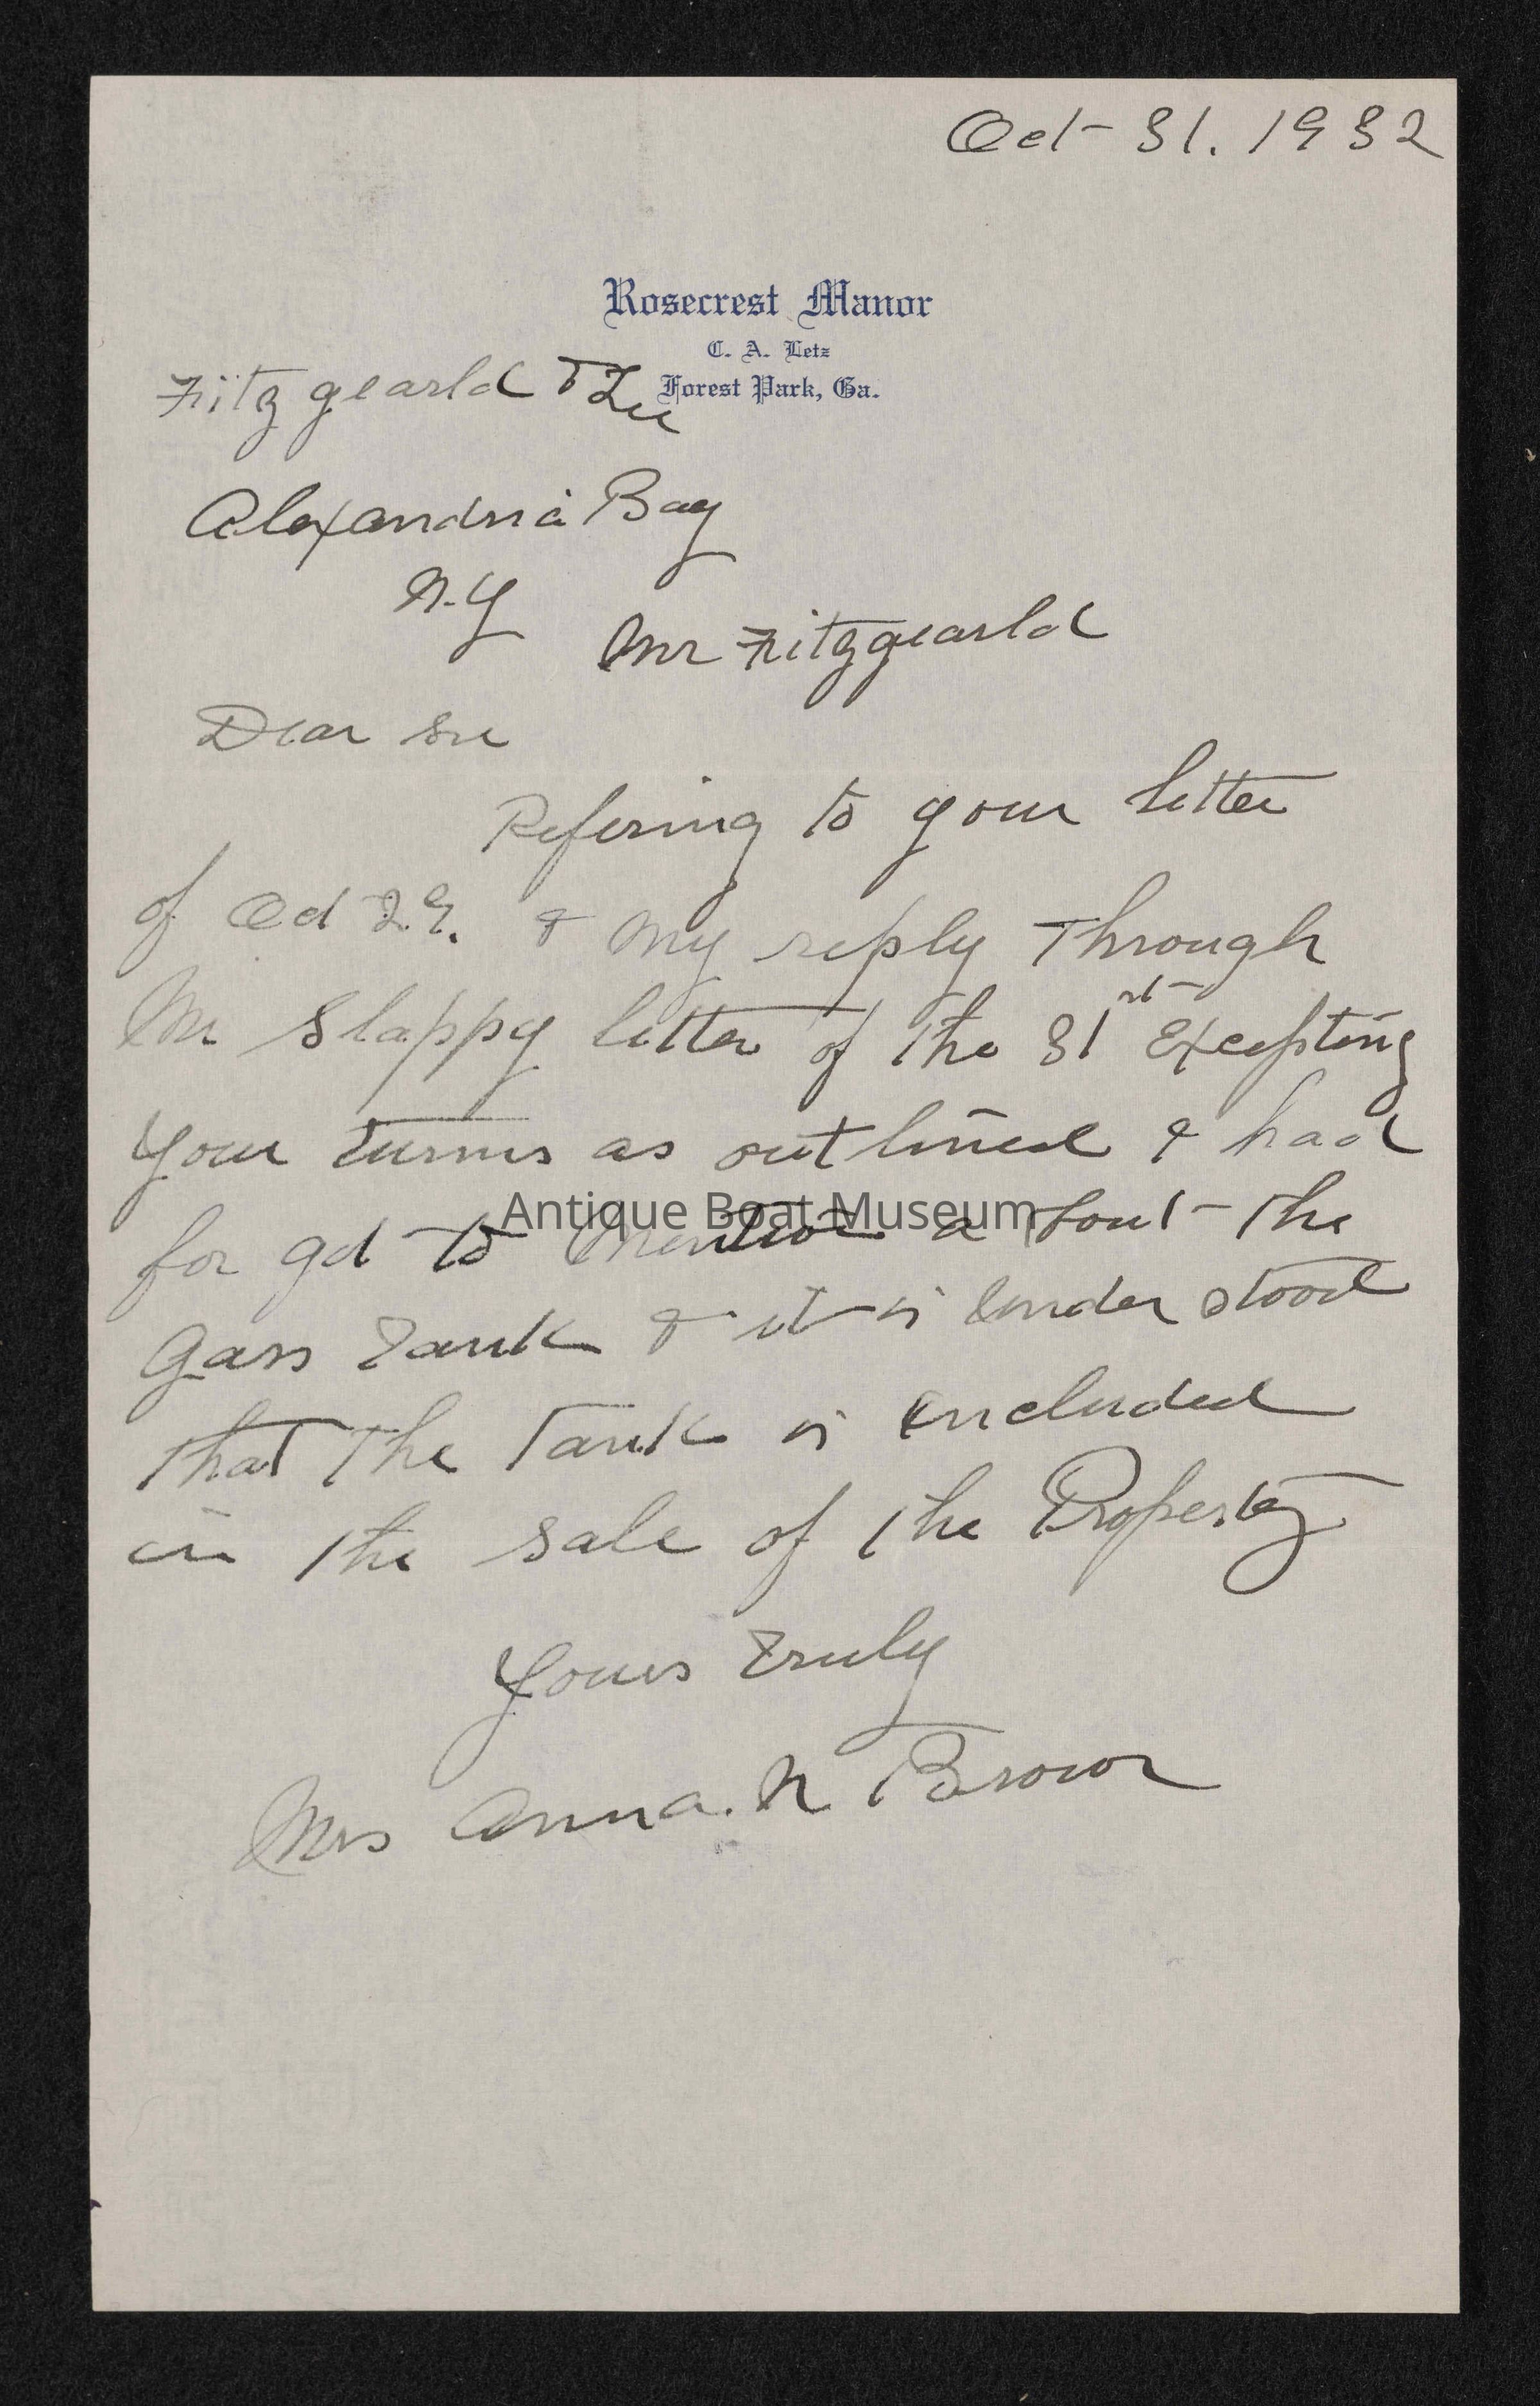 Oct 31. 1932
Rosecrest Manor
C. A. Letz
Forest Park, Ga.
Fitzgearld & Lee
Alexandria Bay
N.Y
Mr Fitzgearld
Dear Sir
Refering to your letter
of Oct 29. & my reply Through
Mr Slappy letter of The 31st Excepting
your turms as outlined & had
for got to mention about The
Gass Tank & it is under stood
That The Tank is included
in The sale of The Property
Yours Truly
Mrs Anna. N Brown
Antique Boat Museum